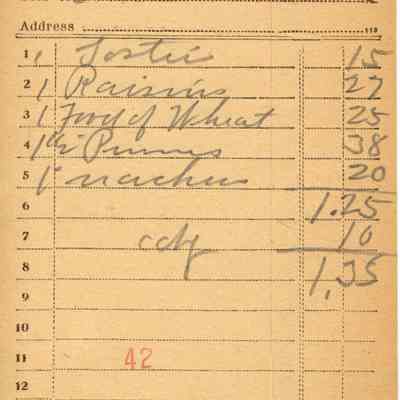 Address 19
1 1 15
2 1 Raisins 27
3 1 Food of Wheat 25
4 1 Prunes 38
5 1 20
6 1.25
7 10
8 1.35
9
10
11 42
12